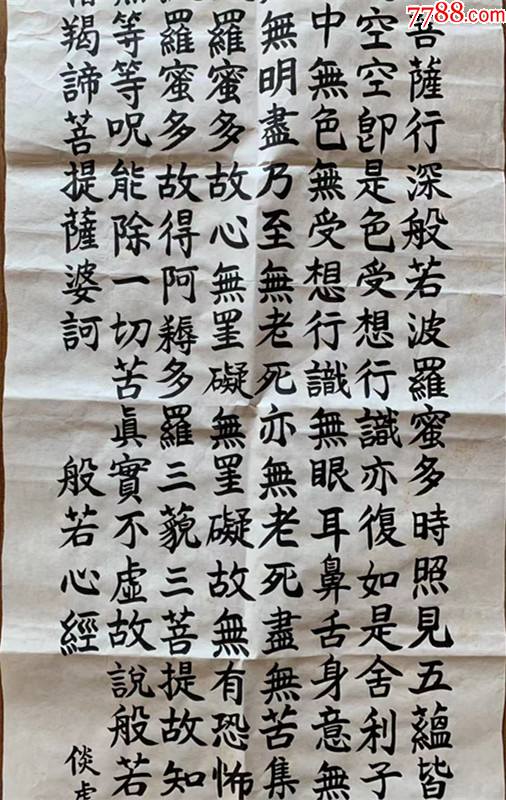 7788.com
菩薩行深般若波羅蜜多時照見五蘊皆
空空卽是色受想行識亦復如是舍利子
中無色無受想行識無眼耳鼻舌身意無
無明盡乃至無老死亦無老死盡無苦集
羅蜜多故心無罣礙無罣礙故無有恐怖
羅蜜多故得阿耨多羅三藐三菩提故知
無等等呪能除一切苦眞實不虛故說般若
羯諦菩提薩婆訶 般若心經
倓